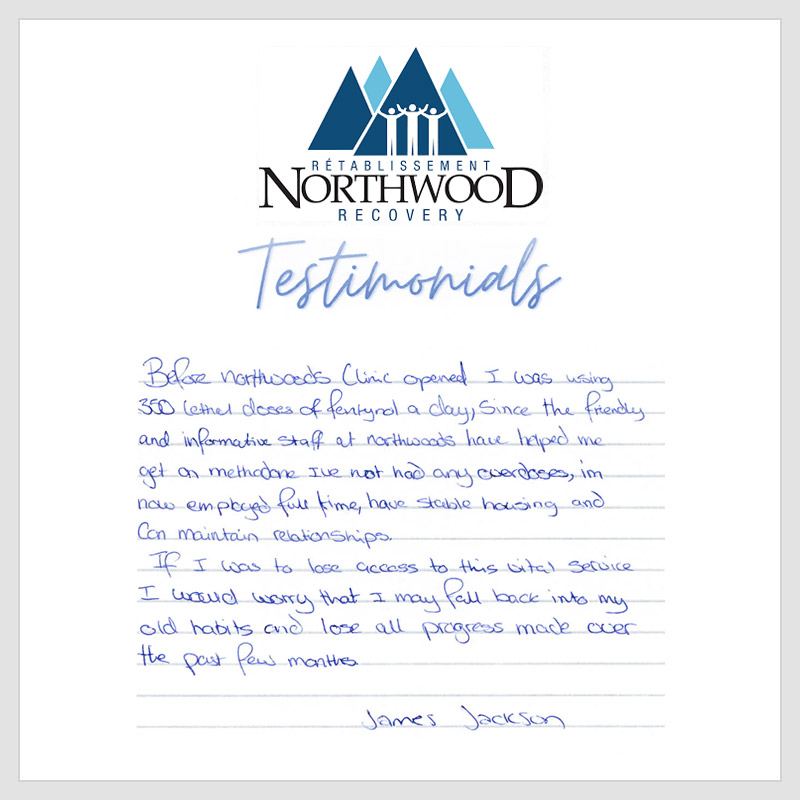 RÉTABLISSEMENT
NORTHWOOD
RECOVERY
Testimonials
Before northwoods Clinic opened I was using
350 lethel doses of fentynol a day, Since the friendly
and informative staff at northwoods have helped me
get on methadone I've not had any overdoses, im
now employed full time, have stable housing and
Can maintain relationships.
If I was to lose access to this vital service
I would worry that I may fall back into my
old habits and lose all progress made over
the past few months
James Jackson